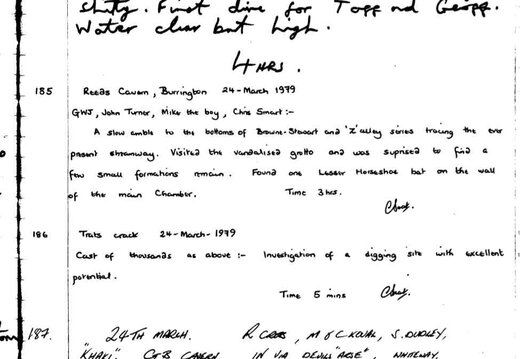 Shitz. First dive for Topp and Geoff.
Water clear but high.
4 HRS.
185 Reads Cavern, Burrington 24-March 1979
GWJ, John Turner, Mike the boy, Chris Smart :-
A slow amble to the bottoms of Browne-Stewart and 'Z' alley series tracing the ever
present streamway. Visited the vandalised grotto and was suprised to find a
few small formations remain. Found one Lesser Horseshoe bat on the wall
of the main Chamber. Time 3hrs.
186 Trats crack 24-March-1979
Cast of thousands as above :- Investigation of a digging site with excellent
potential.
Time 5 mins
187. 24TH MARCH. R CROSS, M & C KOVAL, S. DUDLEY,
"KHAKI". GB CAVERN IN VIA DEVILS "ARSE",